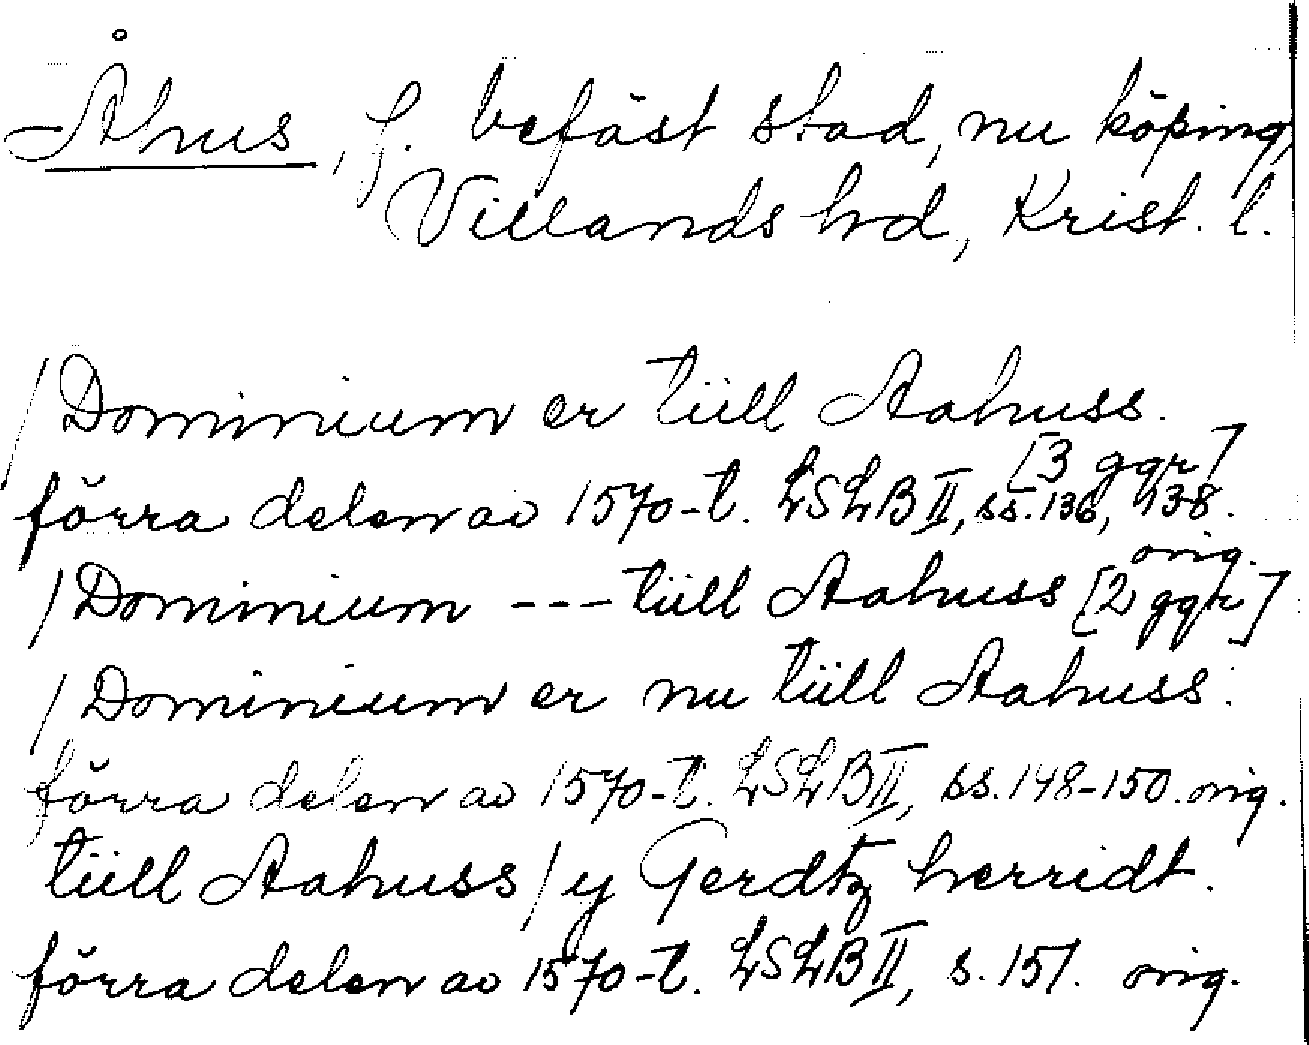 Åhus, f. befäst stad, nu köping,
Villands hd, Krist. l.
/Dominium er tiill Aahuss.
[3 ggr]
förra delen av 1570-t. LSLB II, ss. 136, 138.
orig.
/Dominium --- tiill Aahuss [2 ggr]
/Dominium er nu tiill Aahuss.
förra delen av 1570-t. LSLB II, ss. 148-150. orig.
tiill Aahuss / y Gerdtz herridt.
förra delen av 1570-t. LSLB II, s. 151. orig.